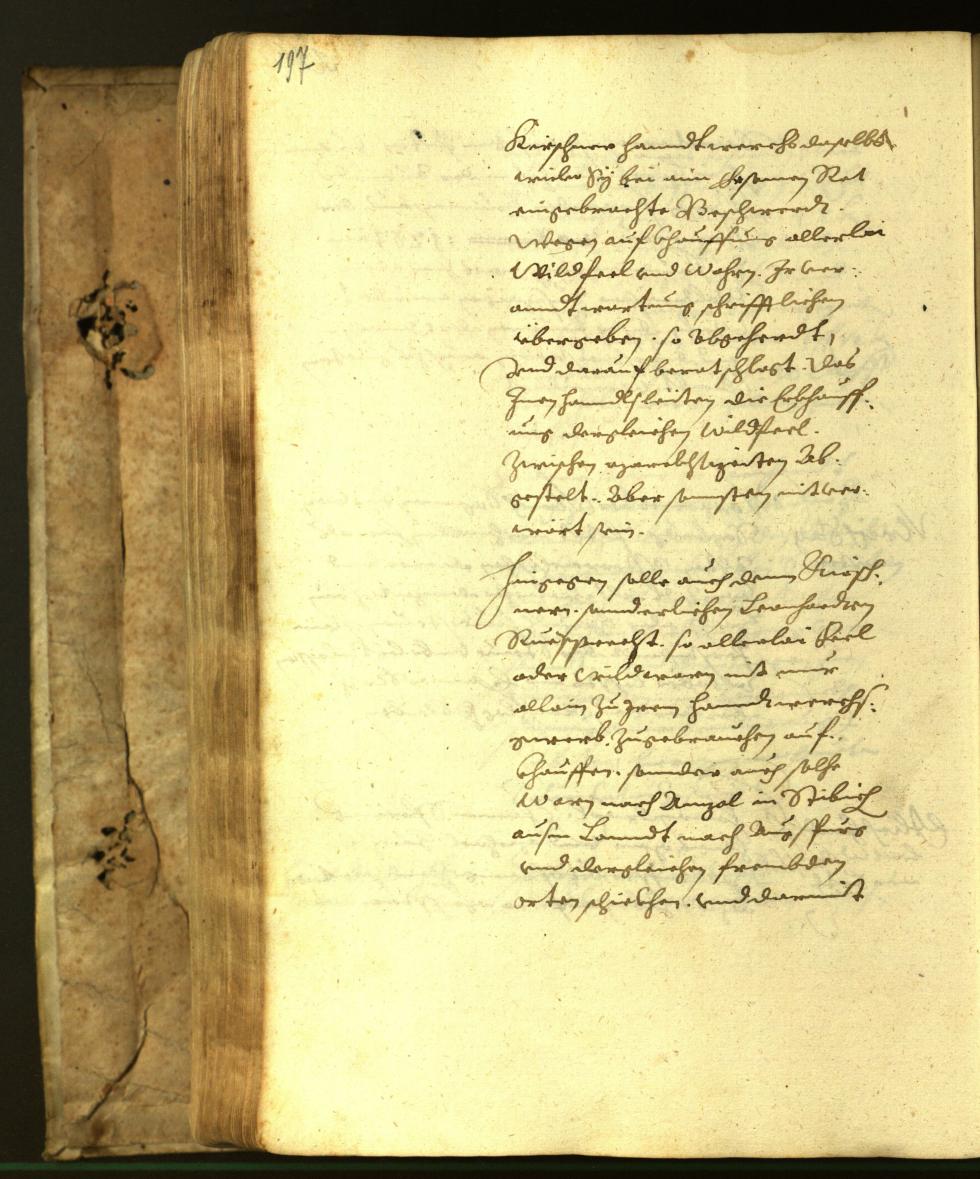 197
Kirschner hanndtwerchs daselbs
wider Sy bei aim Ersamen Rat
eingebrachte Beschwerdt.
Wegen aufkhauffung allerlai
Wildfeel vnd Wahrn. Ir ver:
anndtwortung schrifftlichen
übergeben. so abgeherdt,
Vnd darauf beratschlagt. Das
Inen handlsleüten die Erkhauff:
ung dergleichen Wildfeel.
Zwischen Ab:
gestelt. Aber sonnsten nit ver:
wört sein.
Hingegen solle auch denn Kirsch:
nern. sonnderlichen Leonharden
Ruepprecht. so allerlai Feel
oder Wildwarn nit nur
allain zu Irem hanndtwerchs:
gwerb. zugebrauchen auf:
khauffen. sonnder auch solhe
Warn nach Anzal in Stibich
ausm Lanndt nach Augspurg
vnd dergleichen frembden
orten schickhen. vnd darmit